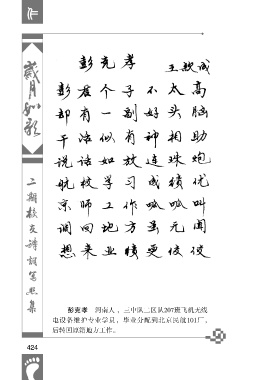 作
岁月如歌
二期校友诗词笔照集
彭克孝
王欣成
彭君个子不太高
却有一副好头脑
干活似有神相助
说话如放连珠炮
航校学习成绩优
京师工作呱呱叫
调回地方虽无闻
想来业绩更佼佼
彭克孝 河南人，三中队二区队207班飞机无线
电设备维护专业学员，毕业分配到北京民航101厂，
后转回原籍地方工作。
424